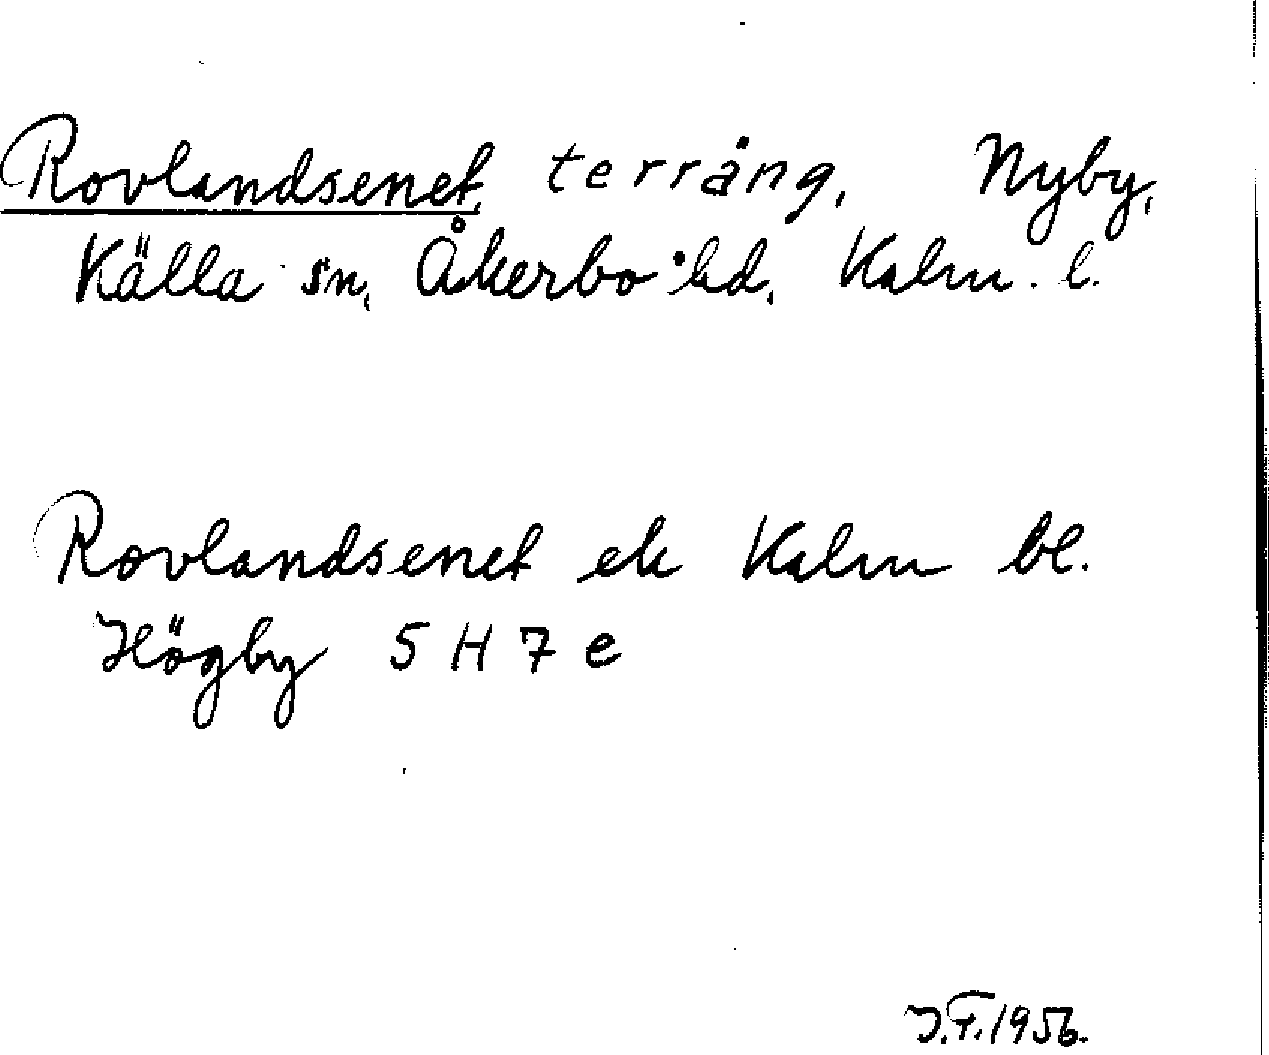 Rovlandsenet, terräng, Nyby,
Källa sn, Åkerbo hd, Kalm. l.
Rovlandsenet ek Kalm bl.
Högby 5 H 7 e
J.F. 1956.